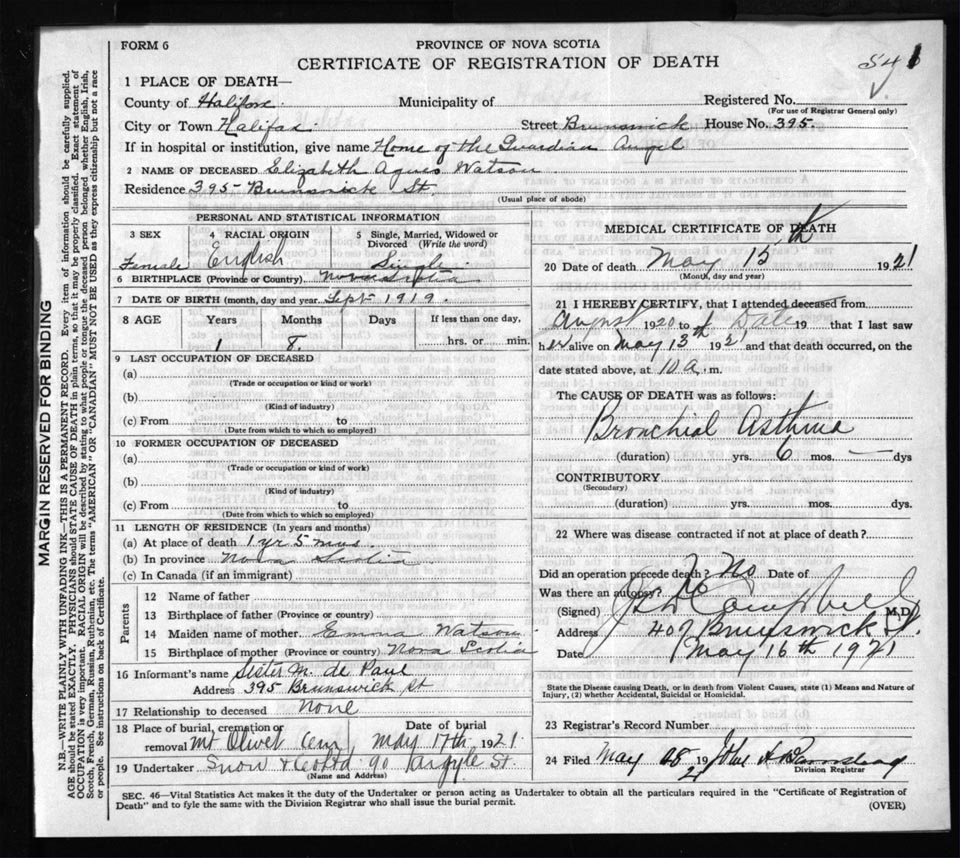 FORM 6
PROVINCE OF NOVA SCOTIA
CERTIFICATE OF REGISTRATION OF DEATH
1 PLACE OF DEATH—
County of Halifax. Municipality of Registered No.
(For use of Registrar General only)
City or Town Halifax Street Brunswick House No. 395.
If in hospital or institution, give name Home of the Guardian Angel
2 NAME OF DECEASED Elizabeth Agnes Watson
Residence 395- Brunswick St.
(Usual place of abode)
PERSONAL AND STATISTICAL INFORMATION
3 SEX 4 RACIAL ORIGIN 5 Single, Married, Widowed or Divorced (Write the word)
Female English Single
6 BIRTHPLACE (Province or Country) Nova Scotia
7 DATE OF BIRTH (month, day and year) Sept 1919.
8 AGE Years Months Days If less than one day,
1 8. hrs. or min.
9 LAST OCCUPATION OF DECEASED
(a)
(Trade or occupation or kind or work)
(b)
(Kind of industry)
(c) From to
(Date from which to which so employed)
10 FORMER OCCUPATION OF DECEASED
(a)
(Trade or occupation or kind of work)
(b)
(Kind of industry)
(c) From to
(Date from which to which so employed)
11 LENGTH OF RESIDENCE (In years and months)
(a) At place of death 1 yr 5 mos.
(b) In province Nova Scotia
(c) In Canada (if an immigrant)
Parents
12 Name of father
13 Birthplace of father (Province or country)
14 Maiden name of mother Emma Watson
15 Birthplace of mother (Province or country) Nova Scotia
16 Informant's name Sister M. de Paul
Address 395 Brunswick St
17 Relationship to deceased None
18 Place of burial, cremation or removal Mt Olivet Cem, Date of burial May 17th 1921.
19 Undertaker Snow & Co Ltd 90 Argyle St.
(Name and Address)
MEDICAL CERTIFICATE OF DEATH
20 Date of death May 15th 1921
(Month, day and year)
21 I HEREBY CERTIFY, that I attended deceased from
August 1920 to Date 19 that I last saw
her alive on May 13 1921 and that death occurred, on the
date stated above, at 10 a. m.
The CAUSE OF DEATH was as follows:
Bronchial Asthma
(duration) yrs. 6 mos. — dys
CONTRIBUTORY
(Secondary)
(duration) yrs. mos. dys.
22 Where was disease contracted if not at place of death?
Did an operation precede death? No Date of
Was there an autopsy? No
(Signed) Campbell M.D.
Address 407 Brunswick St.
Date May 16th 1921
State the Disease causing Death, or in death from Violent Causes, state (1) Means and Nature of Injury, (2) whether Accidental, Suicidal or Homicidal.
23 Registrar's Record Number
24 Filed May 18 1921 John A Barnstead
Division Registrar
SEC. 46—Vital Statistics Act makes it the duty of the Undertaker or person acting as Undertaker to obtain all the particulars required in the "Certificate of Registration of
Death" and to fyle the same with the Division Registrar who shall issue the burial permit. (OVER)
MARGIN RESERVED FOR BINDING
N.B.—WRITE PLAINLY WITH UNFADING INK—THIS IS A PERMANENT RECORD. Every item of information should be carefully supplied.
AGE should be stated EXACTLY. PHYSICIANS should STATE CAUSE OF DEATH in plain terms, so that it may be properly classified. Exact statement of
OCCUPATION is very important. RACIAL ORIGIN will be described by stating to what people or tongue the deceased person belonged, whether English, Irish,
Scotch, French, German, Russian, Ruthenian, etc. The terms "AMERICAN" OR "CANADIAN" MUST NOT BE USED as they express citizenship but not a race
or people. See instructions on back of Certificate.